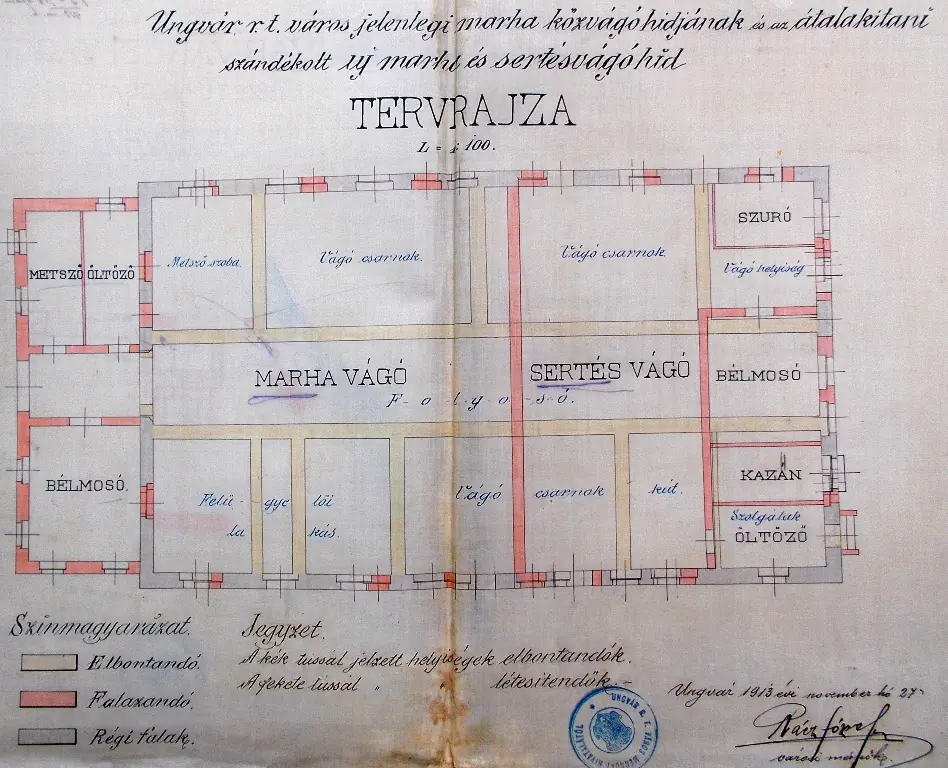 Ungvár r. t. város jelenlegi marha közvágóhidjának és az átalakitani
szándékolt uj marha és sertésvágóhid
TERVRAJZA
L = 1: 100.
SZURÓ
Metsző szoba.
Vágó csarnok.
Vágó csarnok.
Vágó helyiség
METSZŐ
ÖLTÖZŐ
MARHA VÁGÓ
SERTÉS VÁGÓ
BÉLMOSÓ
F-o-l-y-o-s-ó.
BÉLMOSÓ.
KAZÁN
Felü-gye lői
la kás.
Vágó csarnok
kút.
Szolgálak
ÖLTÖZŐ
Szinmagyarázat.
Elbontandó.
Falazandó.
Régi falak.
Jegyzet.
A kék tussal jelzett helyiségek elbontandók.
A fekete tussal " " létesitendők. -
Ungvár 1913 évi november hó 27-
városi mérnök.
UNGVÁR R. T. VÁROS MÉRNÖKI HIVATALA